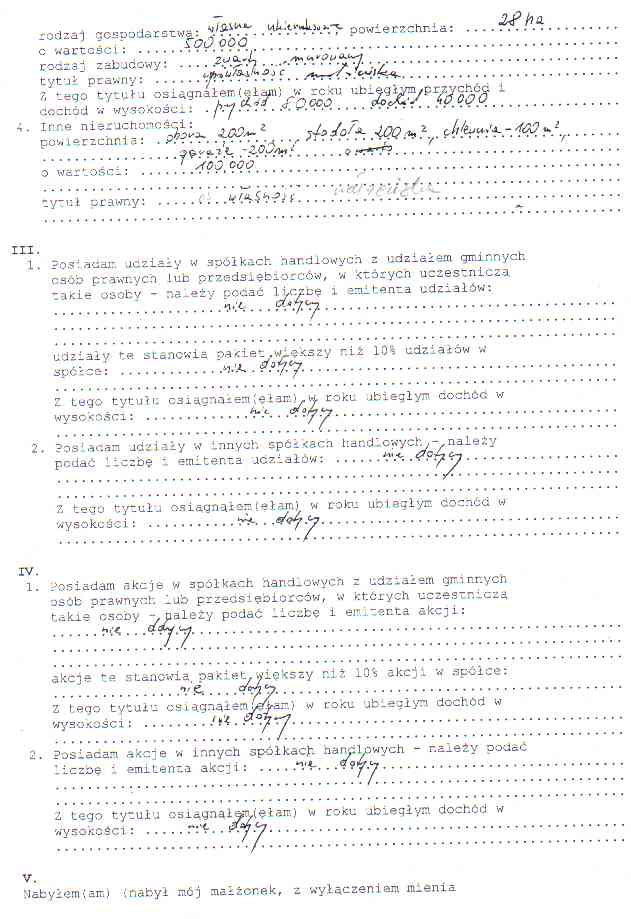 rodzaj gospodarstwa: własne ukierunkowane, powierzchnia: 28 ha
o wartości: 500.000
rodzaj zabudowy: zwarty murowany
tytuł prawny: współwłasność małżeńska
Z tego tytułu osiągnąłem(ęłam) w roku ubiegłym przychód i
dochód w wysokości: przychód 80.000 dochód 40.000
4. Inne nieruchomości:
powierzchnia: obora 200 m², stodoła 200 m², chlewnia - 100 m²,
garaże - 200 m²
o wartości: 100.000
tytuł prawny: własność małżeńska
III.
1. Posiadam udziały w spółkach handlowych z udziałem gminnych
osób prawnych lub przedsiębiorców, w których uczestniczą
takie osoby - należy podać liczbę i emitenta udziałów:
nie dotyczy
udziały te stanowią pakiet większy niż 10% udziałów w
spółce: nie dotyczy
Z tego tytułu osiągnąłem(ęłam) w roku ubiegłym dochód w
wysokości: nie dotyczy
2. Posiadam udziały w innych spółkach handlowych - należy
podać liczbę i emitenta udziałów: nie dotyczy
Z tego tytułu osiągnąłem(ęłam) w roku ubiegłym dochód w
wysokości: nie dotyczy
IV.
1. Posiadam akcje w spółkach handlowych z udziałem gminnych
osób prawnych lub przedsiębiorców, w których uczestniczą
takie osoby - należy podać liczbę i emitenta akcji:
nie dotyczy
akcje te stanowią pakiet większy niż 10% akcji w spółce:
nie dotyczy
Z tego tytułu osiągnąłem(ęłam) w roku ubiegłym dochód w
wysokości: nie dotyczy
2. Posiadam akcje w innych spółkach handlowych - należy podać
liczbę i emitenta akcji: nie dotyczy
Z tego tytułu osiągnąłem(ęłam) w roku ubiegłym dochód w
wysokości: nie dotyczy
V.
Nabyłem(am) (nabył mój małżonek, z wyłączeniem mienia